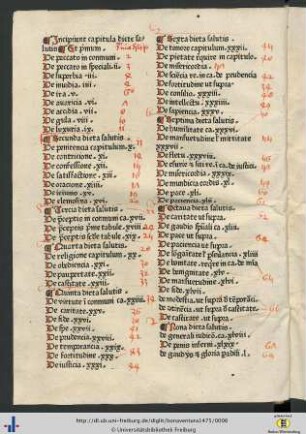 Incipiunt capitula diete sa
lutis Et primum
De peccato in communi . 2
De peccato in speciali .ii. 2
De superbia .iii. 2
De inuidia .iiii.
De ira .v.
De auaricia .vi.
De accidia .vii.
De gula .viii.
De luxuria .ix.
Secunda dieta salutis
De penitentia capitulum .x.
De contritione .xi.
De confessione .xii.
De satisfactione .xiii.
De oratione .xiiii.
De ieiunio .xv.
De elemosina .xvi.
Tercia dieta salutis
De preceptis in communi ca. xvii.
De preceptis prime tabule .xviii.
De preceptis secunde tabule .xix.
Quarta dieta salutis
De religione capitulum .xx.
De obedientia .xxi.
De paupertate .xxii.
De castitate .xxiii.
Quinta dieta salutis
De virtute in communi ca. xxiiii.
De caritate .xxv.
De fide .xxvi.
De spe .xxvii.
De prudentia .xxviii.
De temperantia .xxix.
De fortitudine .xxx.
De iusticia .xxxi.
Sexta dieta salutis .
De timore capitulum .xxxii.
De pietate require in capitulo.
de misericordia .
De scientia re. in ca. de prudentia
De fortitudine vt supra.
De consilio .xxxiii.
De intellectu .xxxiiii.
De sapientia .xxxv.
Septima dieta salutis .
De humilitate ca. xxxvi.
De mansuetudine et mititate
xxxvii.
De fletu .xxxviii.
De misericordia .xxxix.
De mundicia cordis .xl.
De pace .xli.
De patientia .xlii.
Octaua dieta salutis
De caritate vt supra.
De gaudio spirituali ca. xliii.
De pace vt supra.
De patientia vt supra.
De benignitate .xlv.
De mansuetudine .xlvi.
De fide .xlvii.
de modestia vt supra de temperantia.
de continentia vt supra de castitate.
De castitate vt supra.
Nona dieta salutis .
de generali iudicio ca. xlviii.
De penis inferni .xlix.
de gaudijs et gloria paradisi .l.
http://dl.ub.uni-freiburg.de/diglit/bonaventura1475/0006
© Universitätsbibliothek Freiburg